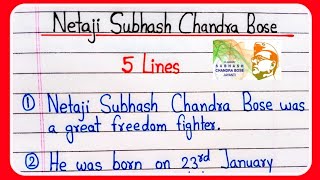 Netaji Subhash Chandra Bose
5 Lines
SUBHASH
CHANDRA BOSE
① Netaji Subhash Chandra Bose was
a great freedom fighter.
② He was born on 23rd January